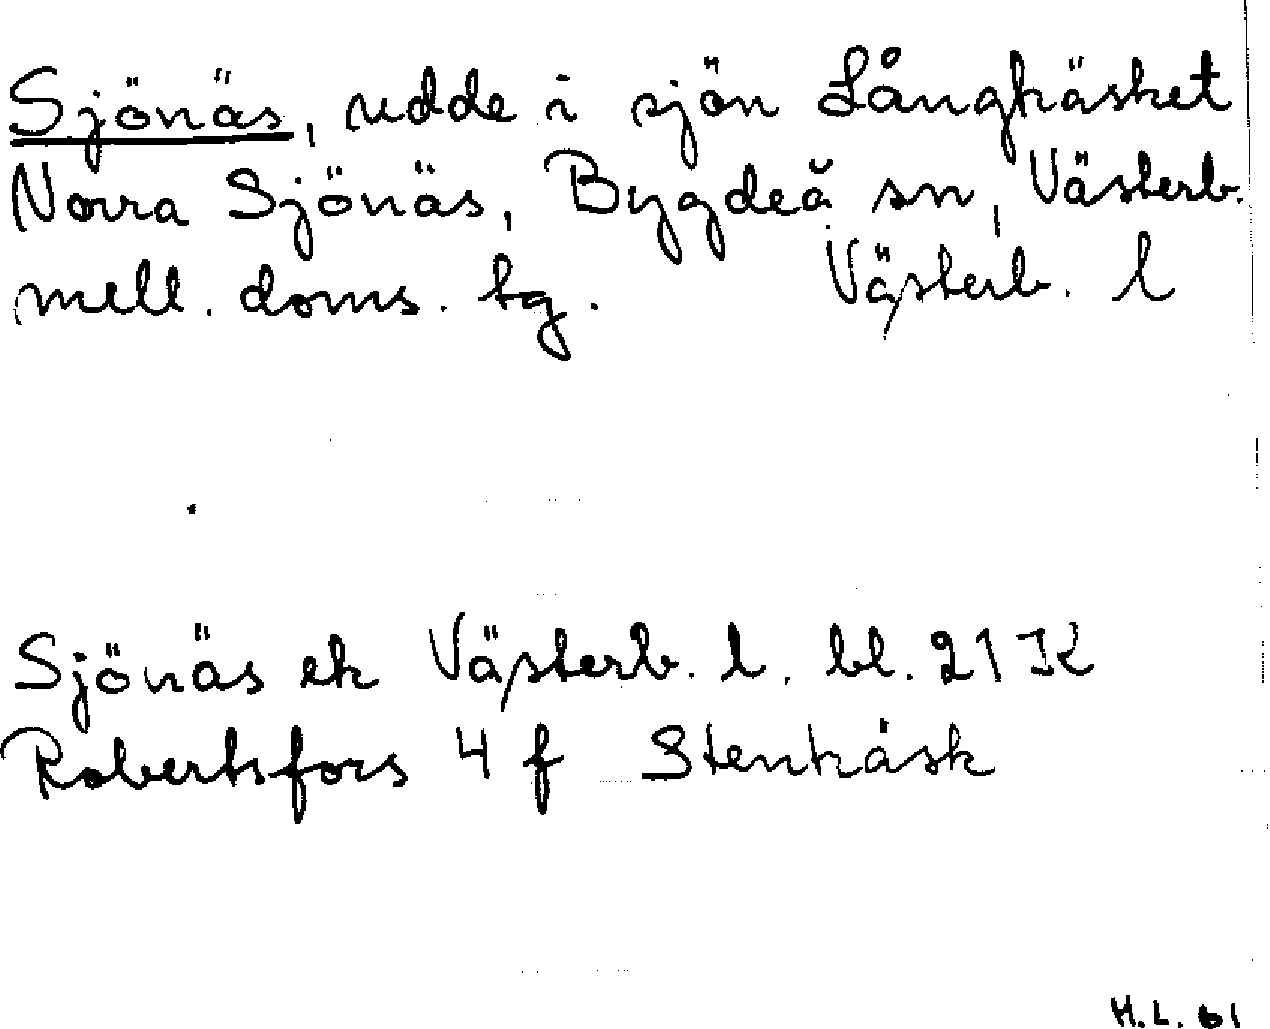 Sjönäs, udde i sjön Långträsket
Norra Sjönäs, Bygdeå sn, Västerb.
mell. doms. tg. Västerb. l
Sjönäs ek Västerb. l. bl. 21 K
Robertsfors 4 f Stenträsk
H.L. 61